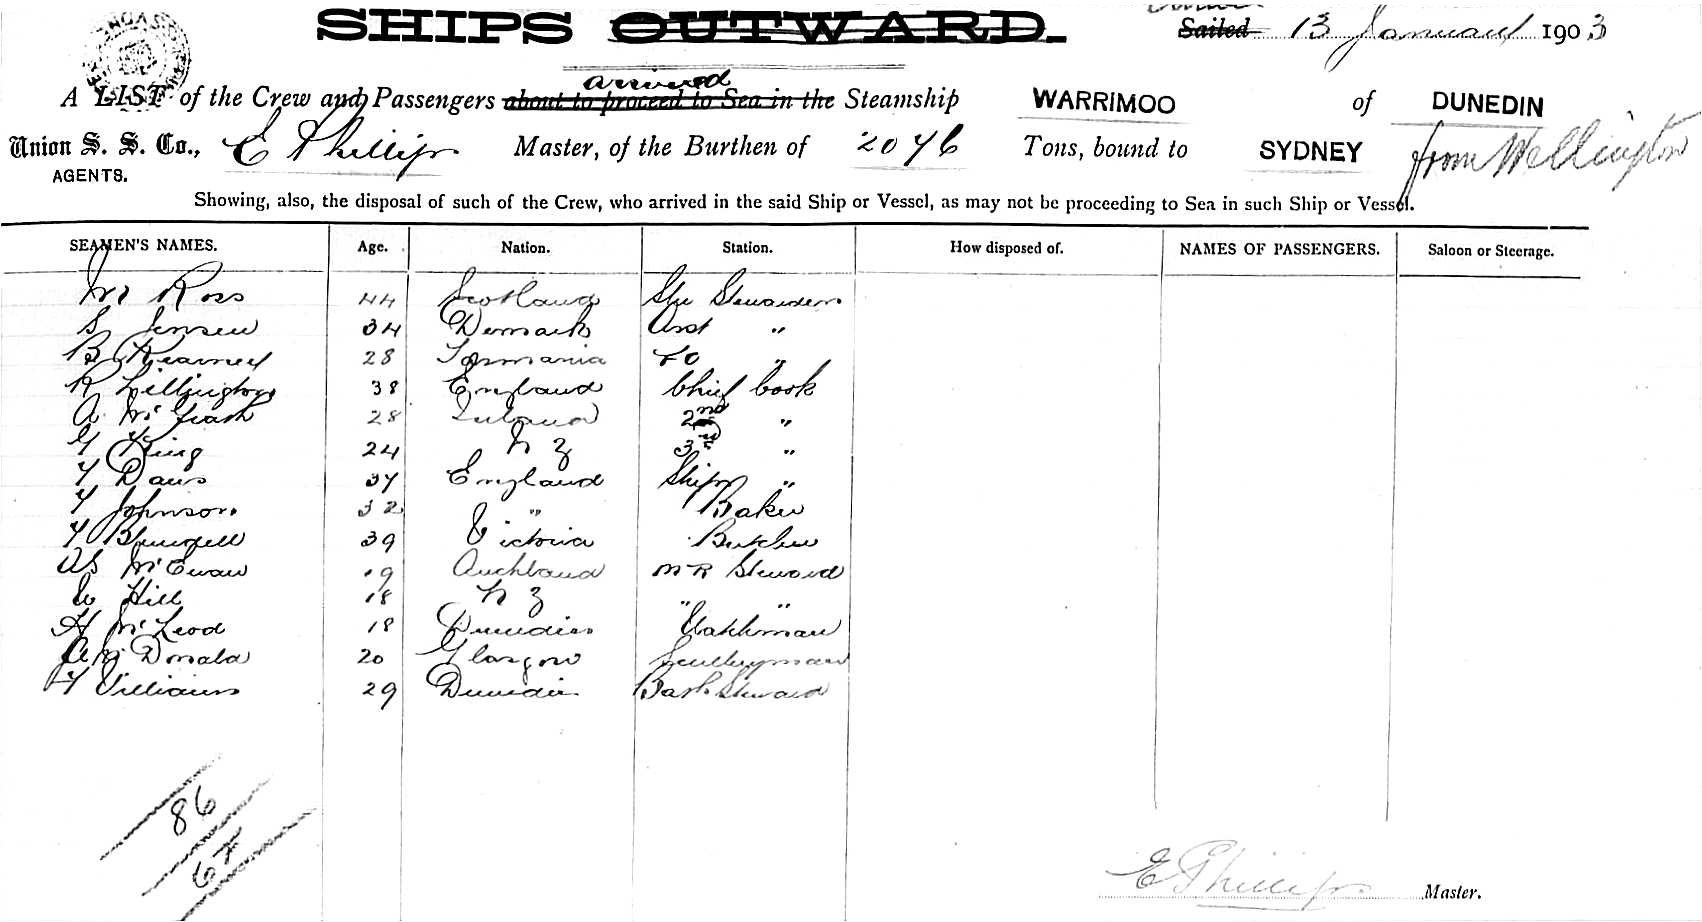 SHIPS OUTWARD.
Sailed 13 January 1903
arrived
A LIST of the Crew and Passengers about to proceed to Sea in the Steamship WARRIMOO of DUNEDIN
Union S. S. Co., E Phillips Master, of the Burthen of 2046 Tons, bound to SYDNEY from Wellington
AGENTS.
Showing, also, the disposal of such of the Crew, who arrived in the said Ship or Vessel, as may not be proceeding to Sea in such Ship or Vessel.
SEAMEN'S NAMES. Age. Nation. Station. How disposed of. NAMES OF PASSENGERS. Saloon or Steerage.
Ross 44 Scotland
S Jensen 34 Denmark Asst "
B Kearney 28 Tasmania Do "
R Lillington 38 England Chief Cook
A McGrath 28 Ireland 2nd "
G King 24 N Z 3rd "
F Davis 37 England Ships "
F Johnson 32 " Baker
F 39 Victoria Butcher
McEwan 19 Auckland M R Steward
W Hill 18 N Z " "
H McLeod 18 Dunedin Watchman
McDonald 20 Glasgow Sculleryman
F Williams 29 Dunedin Steward
86
67
E Phillips Master.